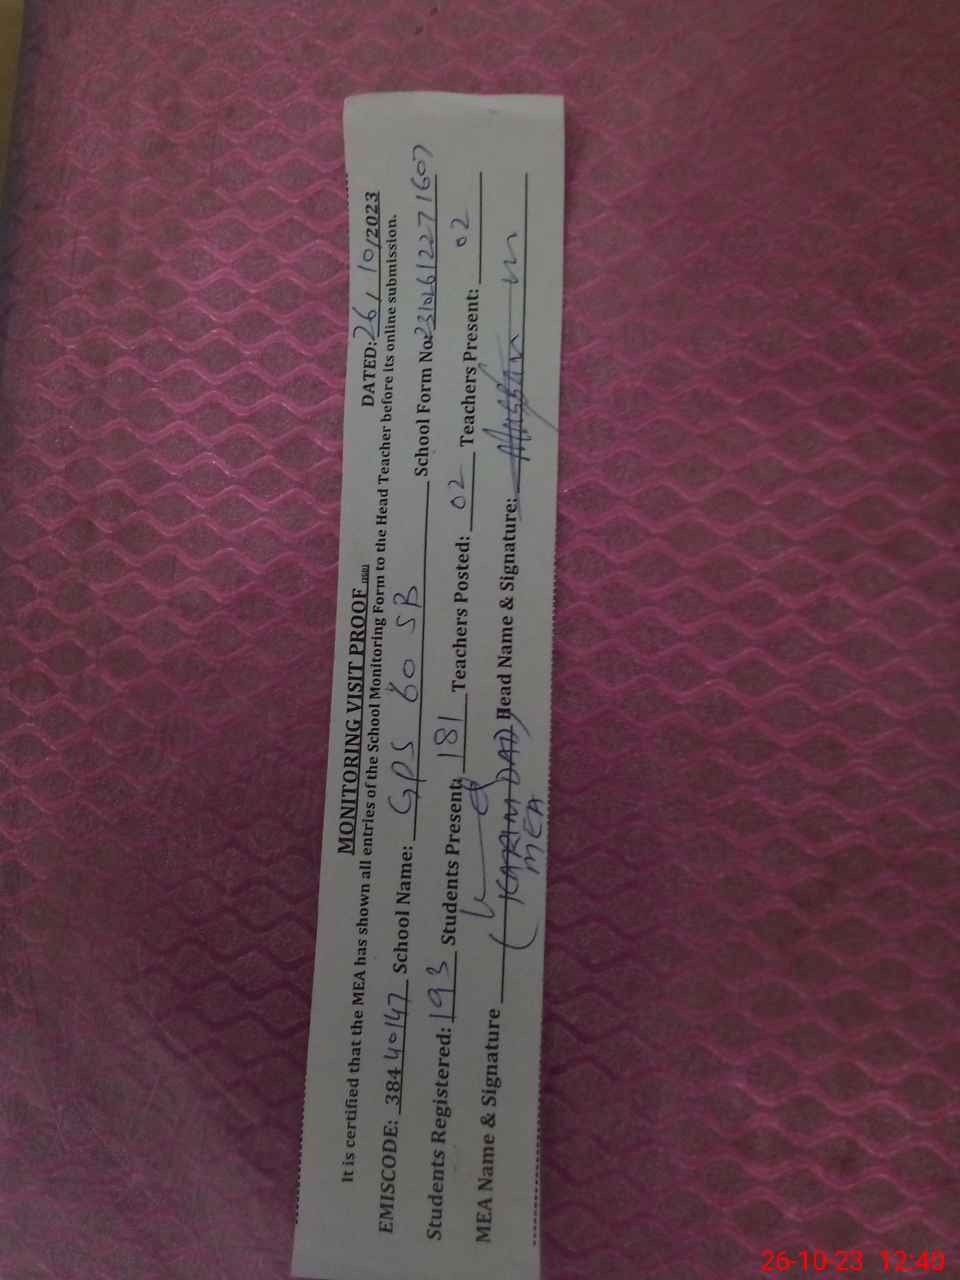 MONITORING VISIT PROOF
DATED: 26/10/2023
It is certified that the MEA has shown all entries of the School Monitoring Form to the Head Teacher before its online submission.
EMISCODE: 38440147 School Name: GPS 60 SB School Form No: 231026122271607
Students Registered: 193 Students Present: 181 Teachers Posted: 02 Teachers Present: 02
MEA Name & Signature (KARIM DAD) Head Name & Signature:
MEA
26-10-23 12:40